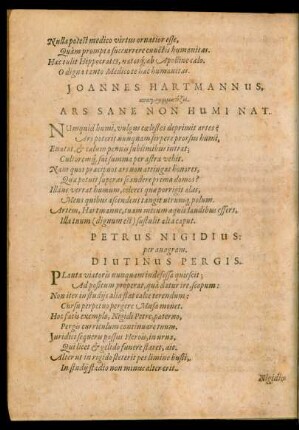 Nulla potest medico virtus ornatior esse,
Quàm promptè succurrere cunctis humanitas.
Hac tulit Hippocrates, notusq; ab Apolline calo.
O digna tanto Medico te hac humanitas.
JOANNES HARTMANNUS,
ARS SANE NON HUMI NAT.
NUmquid humi, vulgus cœlestes deprimit artes?
Ars poterit nunquam serpere prorsus humi,
penus sublimibus intrat,
Cultoremq; sui summa per astra vehit.
Nam quos præcipuus ars non attingat honores,
Qua potuit superas scandere pœna domos?
Illane verrat humum, celeres qua porrigis alas,
Mens quibus ascendens tangit utrumq; polum.
Artem, Hartmanne, tuam totium aquis laudibus effers,
Illa tuum (dignum est) sustulit alta caput.
PETRUS NIGIDIUS:
per anagram.
DIUTINUS PERGIS.
PLanta viatoris nunquam indefessa quiescit;
Ad positum properat, qua datur ire, scopum:
Non iter in studijs alia stat calce terendum;
Cursu perpetuo pergere Musa monet.
Hoc facis exemplo, Nigidi Petre, paterno,
Pergis curriculum continuare tuum.
Juridico signetu possus Herois, in urna,
Qui licet è gelido funere stater, ait.
Alter ut in regido steterit per limine busti,
In studij stadio non minus alter erit.
Nigidio